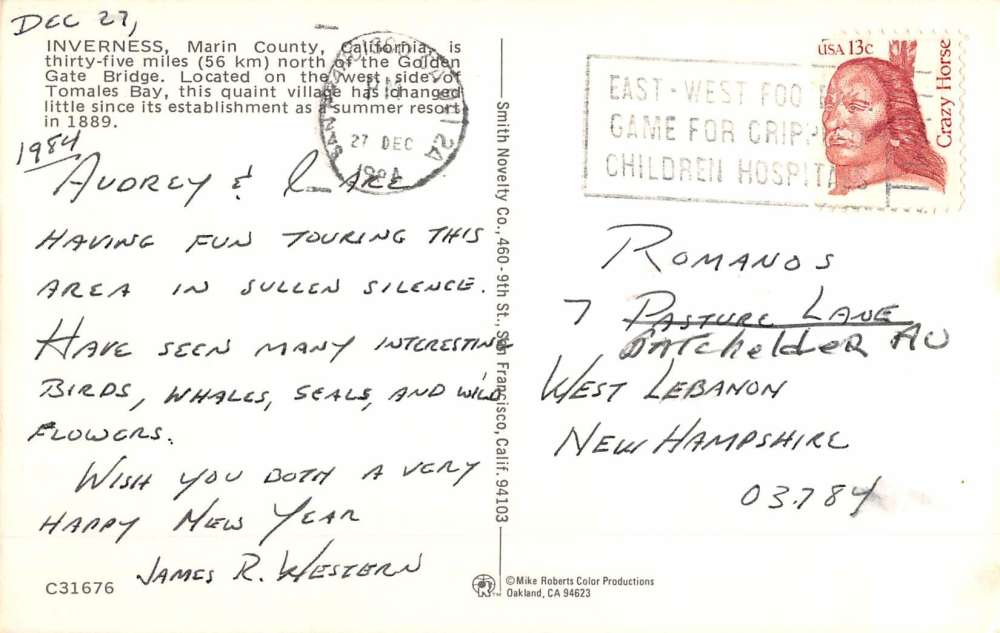 DEC 27,
1984
INVERNESS, Marin County, California, is
thirty-five miles (56 km) north of the Golden
Gate Bridge. Located on the west side of
Tomales Bay, this quaint village has changed
little since its establishment as a summer resort
in 1889.
AUDREY &
HAVING FUN TOURING THIS
AREA IN SULLEN SILENCE.
HAVE SEEN MANY INTERESTING
BIRDS, WHALES, SEALS, AND WILD
FLOWERS.
WISH YOU BOTH A VERY
HAPPY NEW YEAR
JAMES R. WESTERN
C31676
Smith Novelty Co., 460-9th St., San Francisco, Calif. 94103
©Mike Roberts Color Productions
Oakland, CA 94623
27 DEC
EAST-WEST FOO
GAME FOR CRIPP
CHILDREN HOSPITALS
USA 13c
Crazy Horse
ROMANOS
7 PASTURE LANE
BATChelder AV
WEST LEBANON
NEW HAMPSHIRE
03784